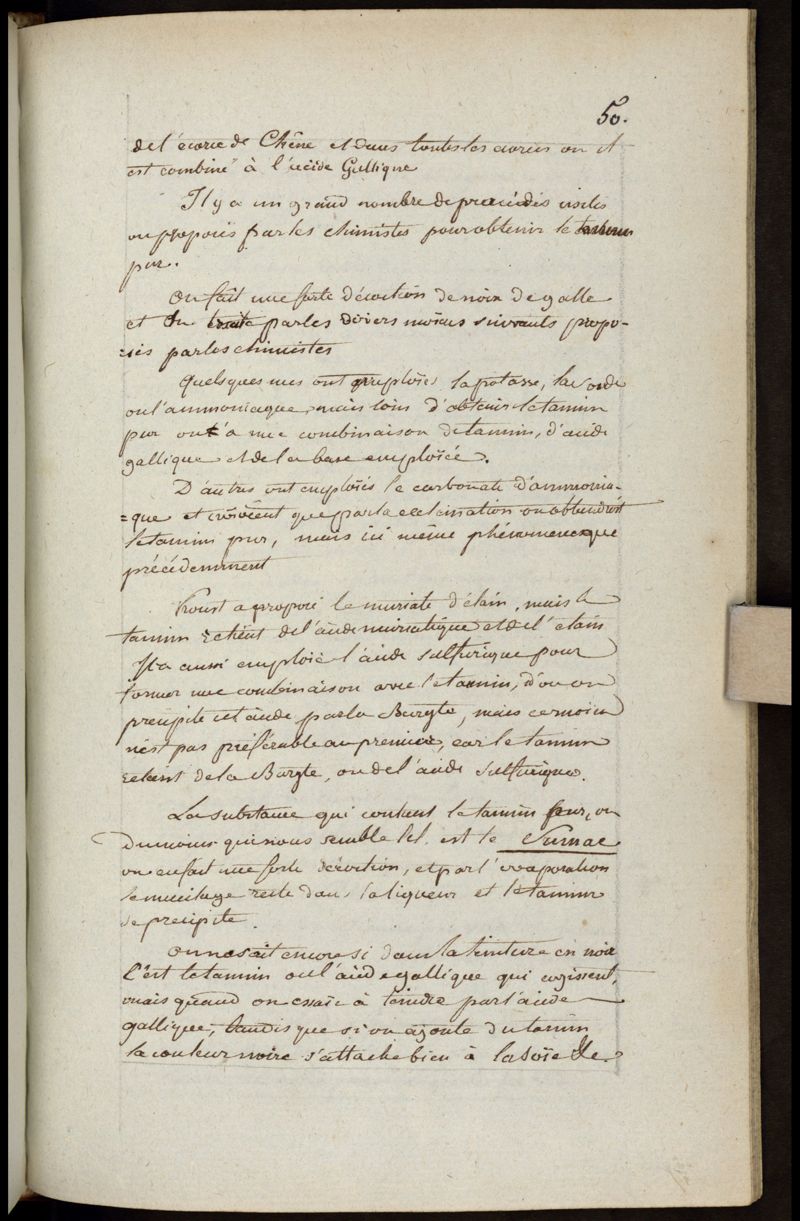 50.
de l'écorce de Chêne et dans toutes les écorces ou il
est combiné à l'acide Gallique
Il y a un grand nombre de procédés usités
ou proposés par les chimistes pour obtenir le tannin
pur.
On fait une forte décoction de noix de galle
et On traite par les divers moiens suivants propo-
=sés par les chimistes
Quelques uns ont emploiés la potasse, la Soude
ou l'ammoniaque, mais loin d'obtenir le tannin
pur on a une combinaison de tannin, d'acide
gallique et de la base emploïée.
D'autres ont emploiés le carbonate d'ammonia-
=que et croioient que par la calcination on obtiendroit
le tannin pur, mais ici même phénomene que
précédemment
Proust a proposé le muriate d'étain, mais le
tannin retient de l'acide muriatique et de l'étain
Il a aussi emploié l'acide Sulfurique pour
former une combinaison avec le tannin, d'ou on
precipite cet acide par la Baryte, mais ce moien
n'est pas préférable au premier, car le tannin
retient de la Baryte, ou de l'acide Sulfurique.
La substance qui contient le tannin pur, ou
Du moins qui nous semble tel est le Sumac
on en fait une forte décoction, et par l'évaporation
le mucilage reste dans la liqueur et le tannin
se precipite.
On ne sait encore si dans la teinture en noir
C'est le tannin ou l'acide gallique qui agissent,
mais quand on essaie à teindre par l'acide
gallique, tandis que si on ajoute du tannin
la couleur noire s'attache bien à la Soie Le